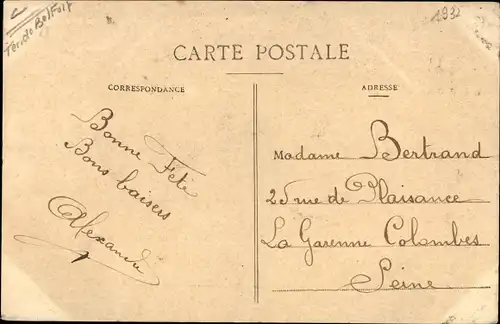 Ter. de Belfort
1932
CARTE POSTALE
CORRESPONDANCE
Bonne Fête
Bons baisers
Alexandre
ADRESSE
Madame Bertrand
25 rue de Plaisance
La Garenne Colombes
Seine